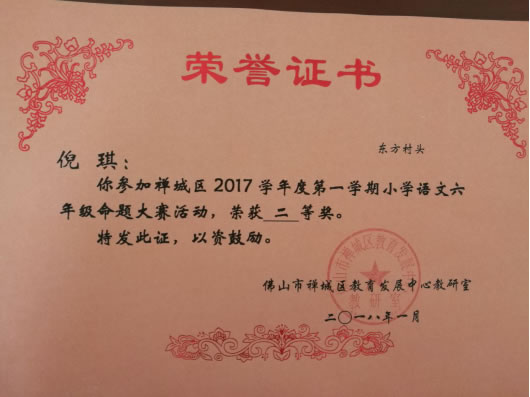 荣誉证书
东方村头
倪 琪：
你参加禅城区2017学年度第一学期小学语文六
年级命题大赛活动，荣获 二 等奖。
特发此证，以资鼓励。
佛山市禅城区教育发展中心教研室
二〇一八年一月
山市禅城区教育发展中
教研室